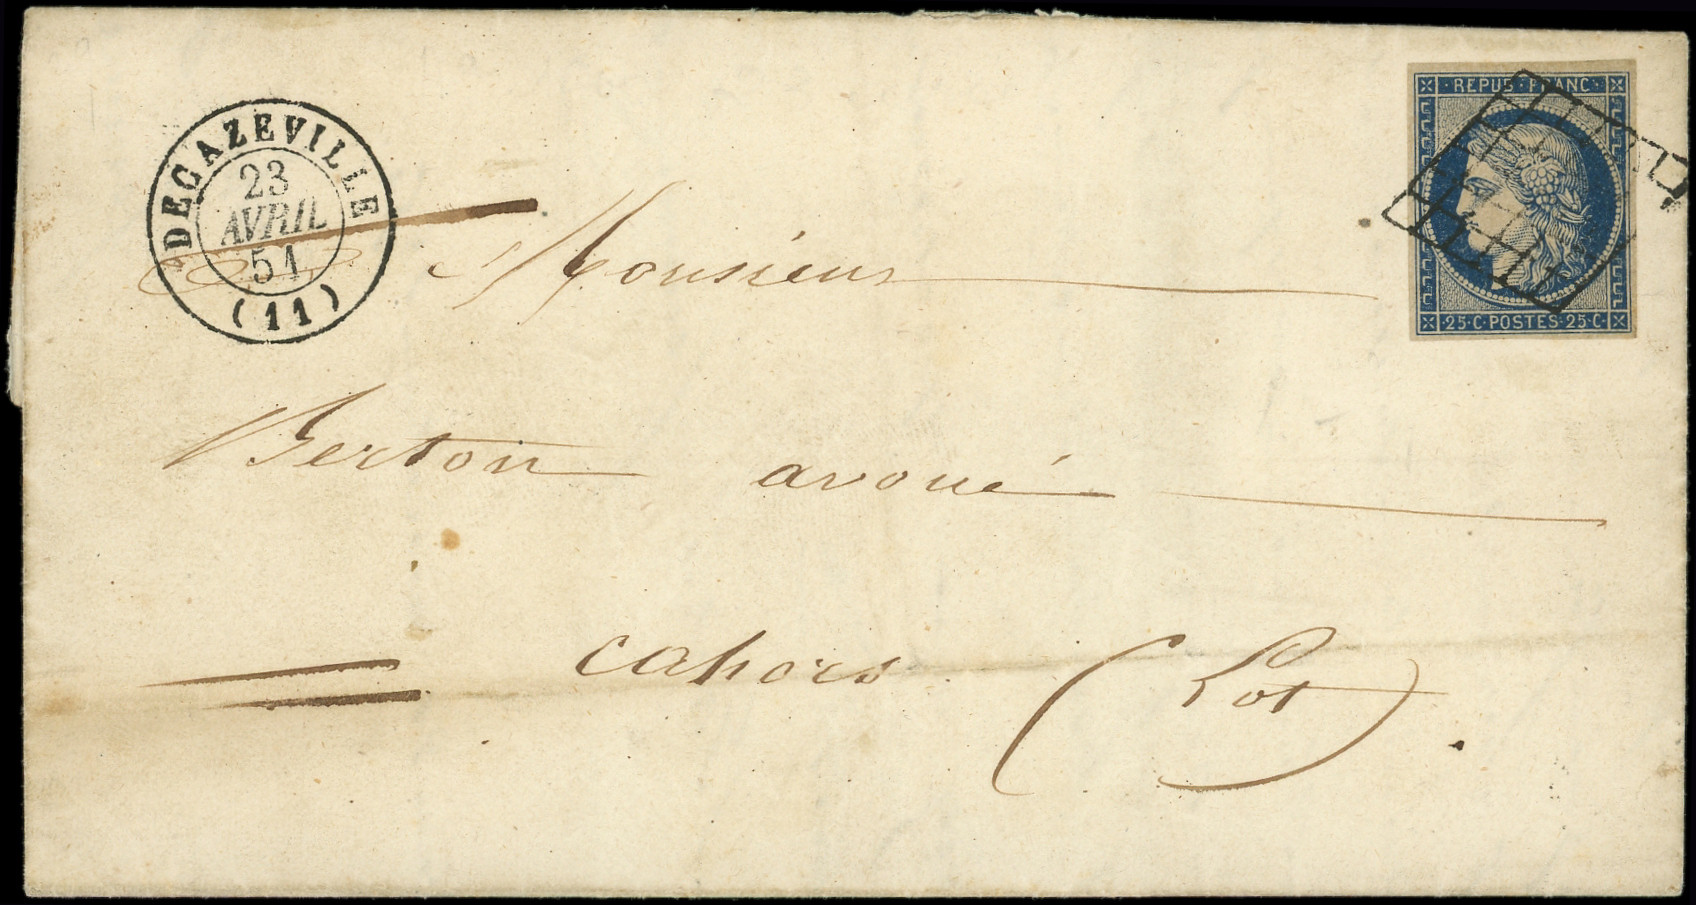 DECAZEVILLE
23
AVRIL
51
(11)
REPUB·FRANC·
25·C·POSTES·25·C·
Monsieur
Berton avoué
Cahors (Lot).